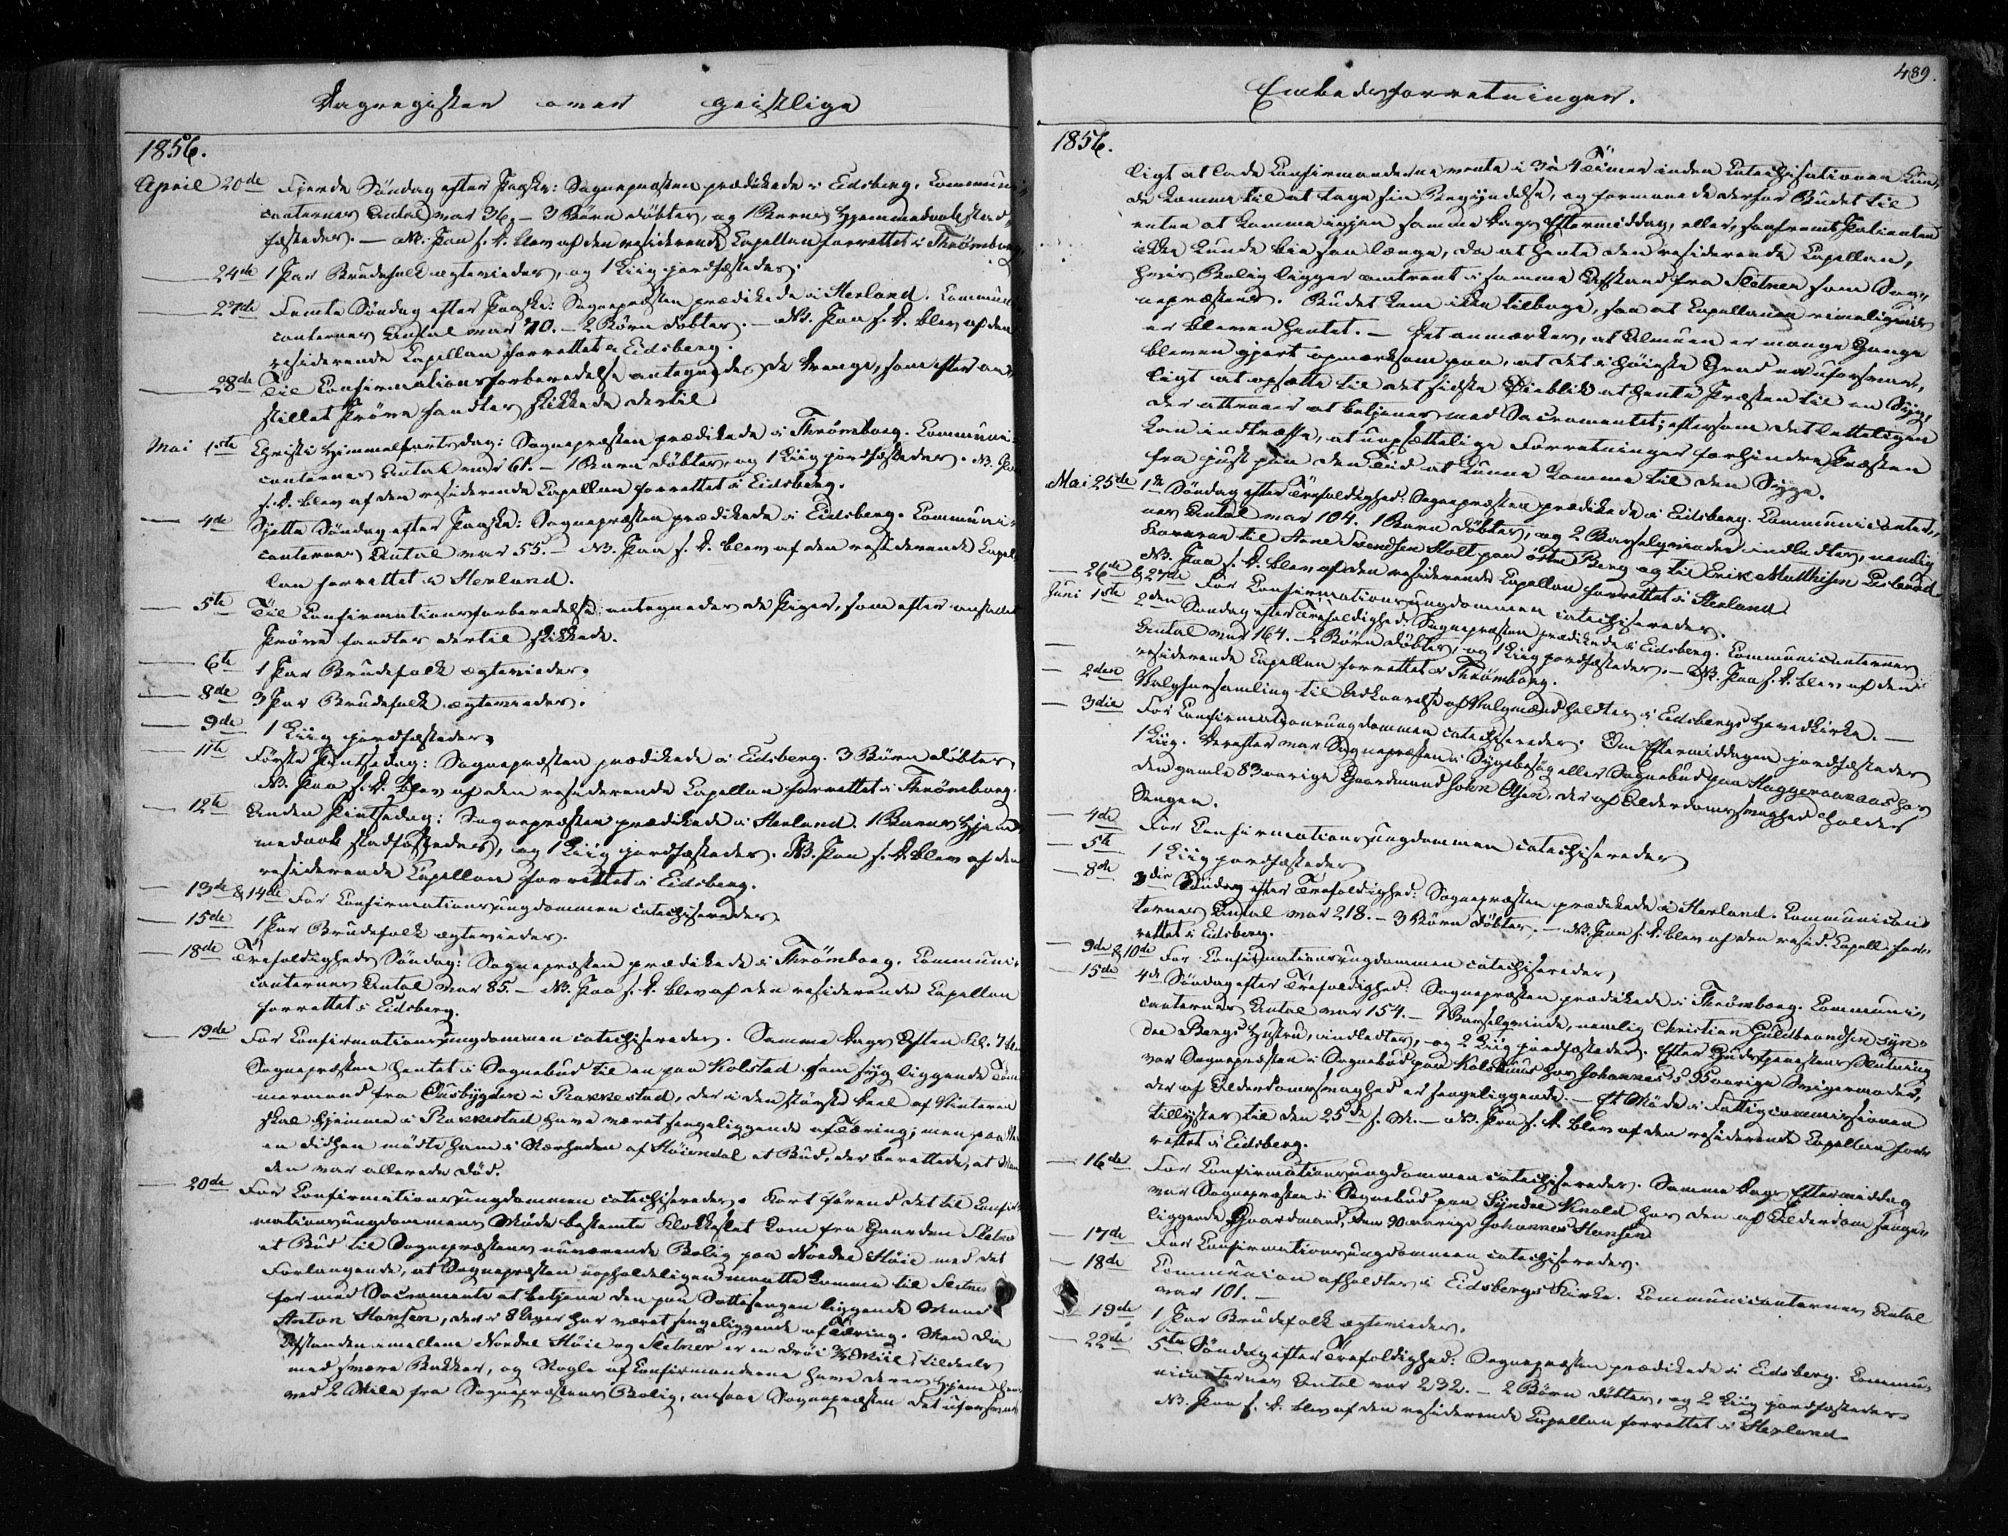 Dagregister over geistlige
1856.
April 20de Fjerde Søndag efter Paaske: Sognepræsten prædikede i Eidsberg. Communi-
canternes Antal var 36. — 3 Børn døbtes, og 1 Barns Hjemmedaab stad-
fæstedes. — NB. Paa s. D. blev af den residerende Capellan forrettet i Thrømborg.
— 24de 1 Par Brudefolk egteviedes, og 1 Liig jordfæstedes.
— 27de Femte Søndag efter Paaske: Sognepræsten prædikede i Herland. Communi-
canternes Antal var 70. — 2 Børn døbtes. — NB. Paa s. D. blev af den
residerende Capellan forrettet i Eidsberg.
— 28de Til Confirmationsforberedelse antegnedes de Drenge, som efter an-
stillet Prøve fandtes skikkede dertil
Mai 1ste Christi Himmelfartsdag: Sognepræsten prædikede i Thrømborg. Communi-
canternes Antal var 61. — 1 Barn døbtes, og 1 Liig jordfæstedes. NB. Paa
s. D. blev af den residerende Capellan forrettet i Eidsberg.
— 4de Sjette Søndag efter Paaske: Sognepræsten prædikede i Eidsberg. Communi-
canternes Antal var 55. — NB. Paa s. D. blev af den residerende Capel-
lan forrettet i Herland.
— 5te Til Confirmationsforberedelse antegnedes de Piger, som efter anstillet
Prøve fandtes dertil skikkede.
— 6te 1 Par Brudefolk egteviedes.
— 8de 3 Par Brudefolk egteviedes.
— 9de 1 Liig jordfæstedes
— 11te Første Pintsedag: Sognepræsten prædikede i Eidsberg. 3 Børn døbtes.
NB. Paa s. D. blev af den residerende Capellan forrettet i Thrømborg.
— 12te Anden Pintsedag: Sognepræsten prædikede i Herland. 1 Barns Hjem-
medaab stadfæstedes, og 1 Liig jordfæstedes. NB. Paa s. D. blev af den
residerende Capellan forrettet i Eidsberg.
— 13de & 14de For Confirmationsungdommen catechiseredes
— 15de 1 Par Brudefolk egteviedes.
— 18de Trefoldigheds Søndag: Sognepræsten prædikede i Thrømborg. Communi-
canternes Antal var 85. — NB. Paa s. D. blev af den residerende Capellan
forrettet i Eidsberg.
— 19de For Confirmationsungdommen catechiseredes. Samme Dags Aften Kl. 7 blev
Sognepræsten hentet i Sognebud til en paa Kolstad som syg liggende Tøm-
mermand fra Ousbygden i Rakkestad, der i den største Deel af Vinteren
skal hjemme i Rakkestad have været sengeliggende af Tæring; men paa Vei-
en didhen mødte ham i Nærheden af Høiendal et Bud, der berettede, at Man-
den var allerede død.
— 20de For Confirmationsungdommen catechiseredes. Kort førend det til Confir-
mationsungdommens Møde bestemte Klokkeslet kom fra Gaarden Sletner
et Bud til Sognepræstens nuværende Bolig paa Nordre Høie med det
Forlangende, at Sognepræsten uopholdeligen maatte komme til Sletner
for med Sacramentet at betjene den paa Sottesengen liggende Mand
Anton Hansen, der i 8 Uger har været sengeliggende af Tæring. Men da
Afstanden imellem Nordre Høie og Sletner er en drøi ¾ Miil tildeels
med svære Bakker, og Nogle af Confirmanderne have deres Hjem hen-
ved 2 Mile fra Sognepræstens Bolig, ansaae Sognepræsten det uforsvar-
Embedsforretninger.
489.
1856.
ligt at lade Confirmanderne vente i 3 à 4 Timer inden Catechisationen kun-
de komme til at tage sin Begyndelse, og formanede derfor Budet til
enten at komme igjen samme Dags Eftermiddag, eller, saafremt Patienten
ikke kunde bie saa længe, da at hente den residerende Capellan,
hvis Bolig ligger omtrent i samme Afstand fra Sletner som Sog-
nepræstens. Budet kom ikke tilbage, saa at Capellanen rimeligviis
er bleven hentet. — Det anmærkes, at Almuen er mange Gange
bleven gjort opmærksom paa, at det i høieste Grad er uforsvar-
ligt at opsætte til det sidste Øieblik at hente Præsten til en Syg,
der attraaer at betjenes med Sacramentet; eftersom det letteligen
kan indtræffe, at uopsættelige Forretninger forhindre Præsten
fra just paa den Tid at kunne komme til den Syge.
Mai 25de 1ste Søndag efter Trefoldighed: Sognepræsten prædikede i Eidsberg. Communicanter-
nes Antal var 104. 1 Barn døbtes, og 2 Barselqvinder indledtes, nemlig
Konerne til Arne Svendsen Holt paa østre Berg og til Erik Matthisen
NB. Paa s. D. blev af den residerende Capellan forrettet i Herland.
— 26de & 27de For Confirmationsungdommen catechiseredes.
Juni 1ste 2den Søndag efter Trefoldighed: Sognepræsten prædikede i Eidsberg. Communicanternes
Antal var 164. — 2 Børn døbtes, og 1 Liig jordfæstedes. — NB. Paa s. D. blev af den
residerende Capellan forrettet i Thrømborg.
— 2den Valgforsamling til Udkaarelse af Valgmænd holdtes i Eidsbergs Hovedkirke. —
— 3die For Confirmationsungdommen catechiseredes. Om Eftermiddagen jordfæstedes
1 Liig. Derefter var Sognepræsten i Sygebesøg eller Sognebud paa Haggeraaraas hos
den gamle 83aarige Gaardmand John Olsen, der af Alderdomssvaghed holder
Sengen.
— 4de For Confirmationsungdommen catechiseredes
— 5te 1 Liig jordfæstedes
— 8de 3die Søndag efter Trefoldighed: Sognepræsten prædikede i Herland. Communican-
ternes Antal var 218. — 3 Børn døbtes. — NB. Paa s. D. blev af den resid. Capell. for-
rettet i Eidsberg.
— 9de & 10de For Confirmationsungdommen catechiseredes
— 15de 4de Søndag efter Trefoldighed: Sognepræsten prædikede i Thrømborg. Communi-
canternes Antal var 154. — 1 Barselqvinde, nemlig Christian Guldbrandsen syn-
dre Bergs Hustru, indledtes, og 2 Liig jordfæstedes. Efter Gudstjenestens Slutning
var Sognepræsten i Sognebud paa Kolshuus hos Johannes's aarige Svigermoder,
der af Alderdomssvaghed er sengeliggende. — Et Møde i Fattigcommissionen
tillystes til den 25de s. M. — NB. Paa s. D. blev af den residerende Capellan for-
rettet i Eidsberg.
— 16de For Confirmationsungdommen catechiseredes. Samme Dags Eftermiddag
var Sognepræsten i Sognebud paa Syndre Knold hos den af Alderdom senge-
liggende Gaardmand, den 90aarige Johannes Hansen
— 17de For Confirmationsungdommen catechiseredes.
— 18de Communion afholdtes i Eidsbergs Kirke. Communicanternes Antal
var 101. —
— 19de 1 Par Brudefolk egteviedes.
— 22de 5te Søndag efter Trefoldighed: Sognepræsten prædikede i Eidsberg. Commu-
nicanternes Antal var 232. — 2 Børn døbtes, og 2 Liig jordfæstedes
NB. Paa s. D. blev af den residerende Capellan forrettet i Herland.